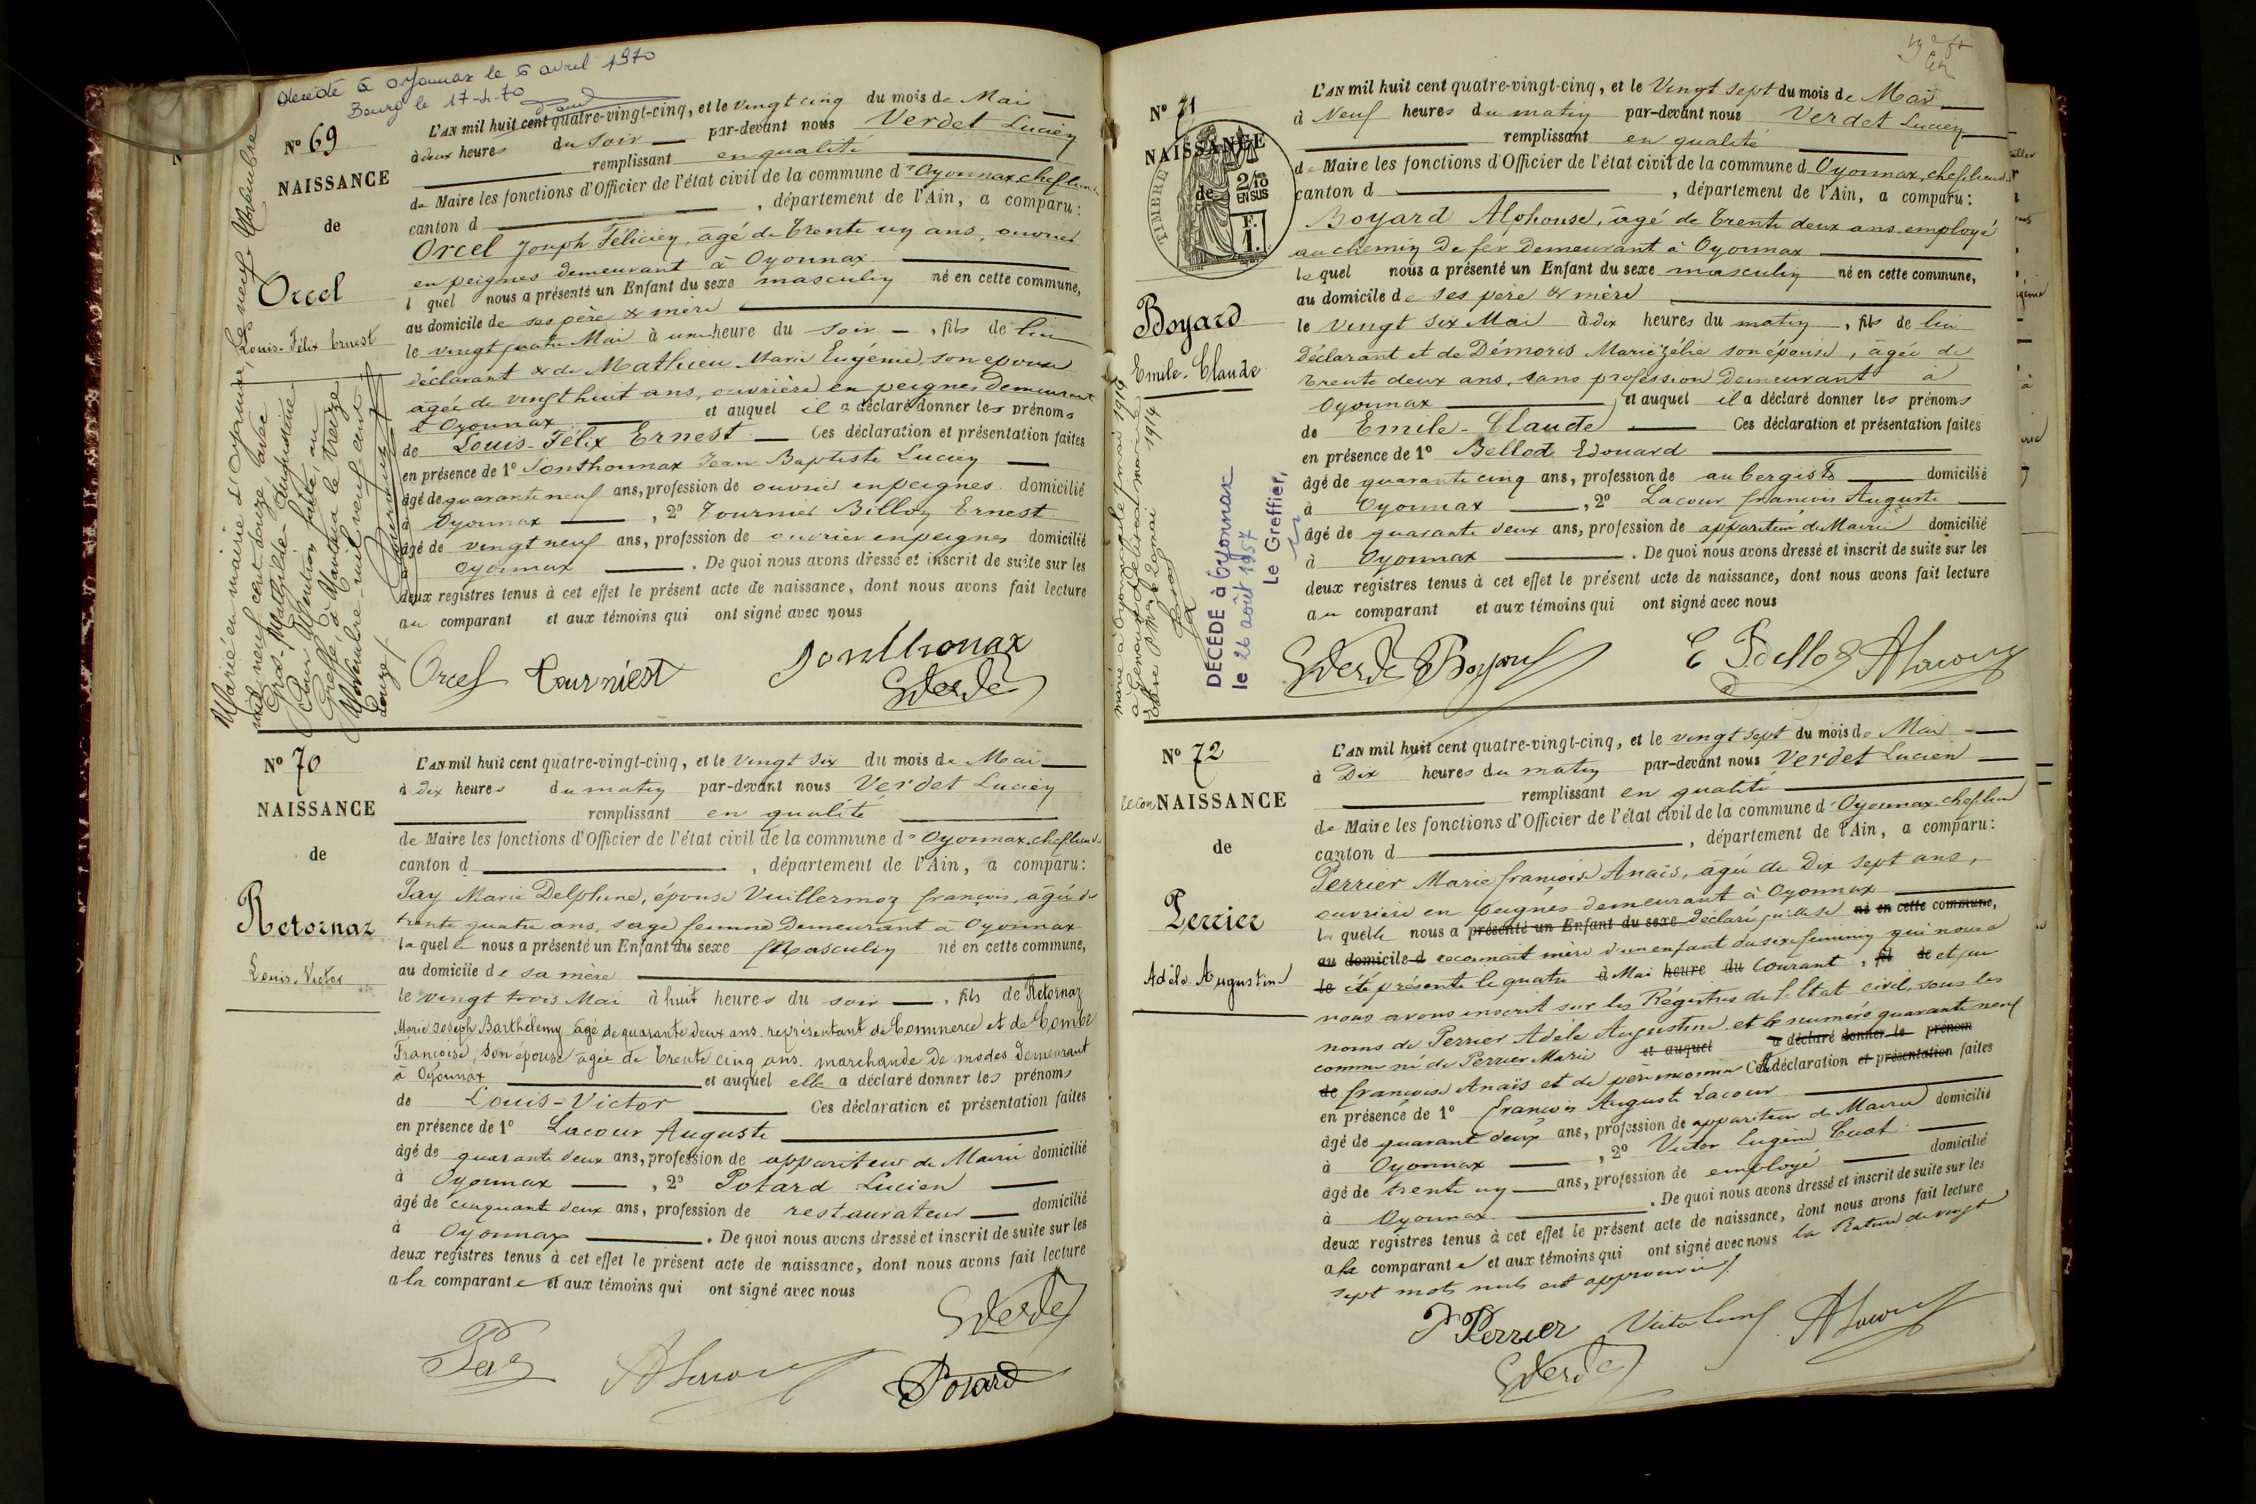 décédé à Oyonnax le 6 avril 1970
Bourg le 17-4-70
N° 69
NAISSANCE
de
Orcel
Louis-Félix Ernest
Marié en mairie d'Oyonnax, le neuf Novembre
mil neuf cent douze avec
Gros- Mathilde- Augustine
Pour Mention faite, au
Greffe à Nantua le treize
Novembre mil neuf cent
douze /.
L'AN mil huit cent quatre-vingt-cinq, et le vingt cinq du mois de Mai
à deux heures du soir par-devant nous Verdet Lucien
remplissant en qualité
de Maire les fonctions d'Officier de l'état civil de la commune d'Oyonnax, chef lieu de
canton d , département de l'Ain, a comparu:
Orcel Joseph Félicien, âgé de trente un ans, ouvrier
en peignes demeurant à Oyonnax
l quel nous a présenté un Enfant du sexe masculin né en cette commune,
au domicile de ses père & mère
le vingt quatre Mai à une heure du soir , fils de lui
déclarant & de Mathieu Marie Eugénie, son épouse
âgée de vingt huit ans, ouvrière en peignes demeurant
à Oyonnax et auquel il a déclaré donner les prénoms
de Louis-Félix Ernest Ces déclaration et présentation faites
en présence de 1° Jonthonnax Jean Baptiste Lucien
âgé de quarante neuf ans, profession de ouvrier en peignes domicilié
à Oyonnax , 2° Tournier Billon Ernest
âgé de vingt neuf ans, profession de ouvrier en peignes domicilié
à Oyonnax . De quoi nous avons dressé et inscrit de suite sur les
deux registres tenus à cet effet le présent acte de naissance, dont nous avons fait lecture
au comparant et aux témoins qui ont signé avec nous
Orcel Tournier Jonthonnax
Verdet
N° 70
NAISSANCE
de
Retornaz
Louis-Victor
L'AN mil huit cent quatre-vingt-cinq, et le vingt six du mois de Mai
à dix heures du matin par-devant nous Verdet Lucien
remplissant en qualité
de Maire les fonctions d'Officier de l'état civil de la commune d'Oyonnax, chef lieu de
canton d , département de l'Ain, a comparu:
Pay Marie Delphine, épouse Vuillermoz françois, âgée de
trente quatre ans, sage femme demeurant à Oyonnax
laquelle nous a présenté un Enfant du sexe Masculin né en cette commune,
au domicile de sa mère
le vingt trois Mai à huit heures du soir , fils de Retornaz
Marie Joseph Barthélemy âgé de quarante deux ans représentant de Commerce et de Combe
Françoise, son épouse âgée de trente cinq ans marchande de modes demeurant
à Oyonnax et auquel elle a déclaré donner les prénoms
de Louis-Victor Ces déclaration et présentation faites
en présence de 1° Lacour Auguste
âgé de quarante deux ans, profession de appariteur de Mairie domicilié
à Oyonnax , 2° Potard Lucien
âgé de cinquante deux ans, profession de restaurateur domicilié
à Oyonnax . De quoi nous avons dressé et inscrit de suite sur les
deux registres tenus à cet effet le présent acte de naissance, dont nous avons fait lecture
a la comparante et aux témoins qui ont signé avec nous
Verdet
Pay ALacour Potard
N° 71
NAISSANCE
de
TIMBRE
2/10
EN SUS
F.
1.
Boyard
Emile-Claude
1914
DÉCÉDÉ à Oyonnax
le 26 août 1957
Le Greffier,
L'AN mil huit cent quatre-vingt-cinq, et le Vingt sept du mois de Mai
à Neuf heures du matin par-devant nous Verdet Lucien
remplissant en qualité
de Maire les fonctions d'Officier de l'état civil de la commune d'Oyonnax, chef lieu de
canton d , département de l'Ain, a comparu:
Boyard Alphonse, âgé de trente deux ans employé
au chemin de fer demeurant à Oyonnax
lequel nous a présenté un Enfant du sexe masculin né en cette commune,
au domicile de ses père & mère
le vingt six Mai à dix heures du matin , fils de lui
déclarant et de Démoris Marie Zélie son épouse, âgée de
trente deux ans, sans profession demeurant à
Oyonnax et auquel il a déclaré donner les prénoms
de Emile-Claude Ces déclaration et présentation faites
en présence de 1° Bellod Edouard
âgé de quarante cinq ans, profession de aubergiste domicilié
à Oyonnax , 2° Lacour françois Auguste
âgé de quarante deux ans, profession de appariteur de Mairie domicilié
à Oyonnax . De quoi nous avons dressé et inscrit de suite sur les
deux registres tenus à cet effet le présent acte de naissance, dont nous avons fait lecture
au comparant et aux témoins qui ont signé avec nous
Verdet Boyard E Bellod ALacour
N° 72
NAISSANCE
de
Perrier
Adèle Augustine
L'AN mil huit cent quatre-vingt-cinq, et le vingt sept du mois de Mai
à Dix heures du matin par-devant nous Verdet Lucien
remplissant en qualité
de Maire les fonctions d'Officier de l'état civil de la commune d'Oyonnax, chef lieu
canton d , département de l'Ain, a comparu:
Perrier Marie françoise Anaïs, âgée de Dix sept ans,
ouvrière en peignes demeurant à Oyonnax
laquelle nous a présenté un Enfant du sexe déclaré qu'elle se né en cette commune,
au domicile d reconnait mère d'un enfant du sexe féminin qui nous a
le été présenté le quatre à Mai heure du Courant , fil de et que
nous avons inscrit sur les Régistres de l'Etat civil, sous les
noms de Perrier Adèle Augustine et le numéro quarante neuf
comme né de Perrier Marie et auquel a déclaré donner le prénom
de françoise Anaïs et de père inconnu Cette déclaration et présentation faites
en présence de 1° françois Auguste Lacour
âgé de quarante deux ans, profession de appariteur de Mairie domicilié
à Oyonnax , 2° Victor Eugène Cuat
âgé de trente un ans, profession de employé domicilié
à Oyonnax . De quoi nous avons dressé et inscrit de suite sur les
deux registres tenus à cet effet le présent acte de naissance, dont nous avons fait lecture
a la comparante et aux témoins qui ont signé avec nous la Rature de vingt
sept mots nuls est approuvée /.
Perrier ALacour
Verdet